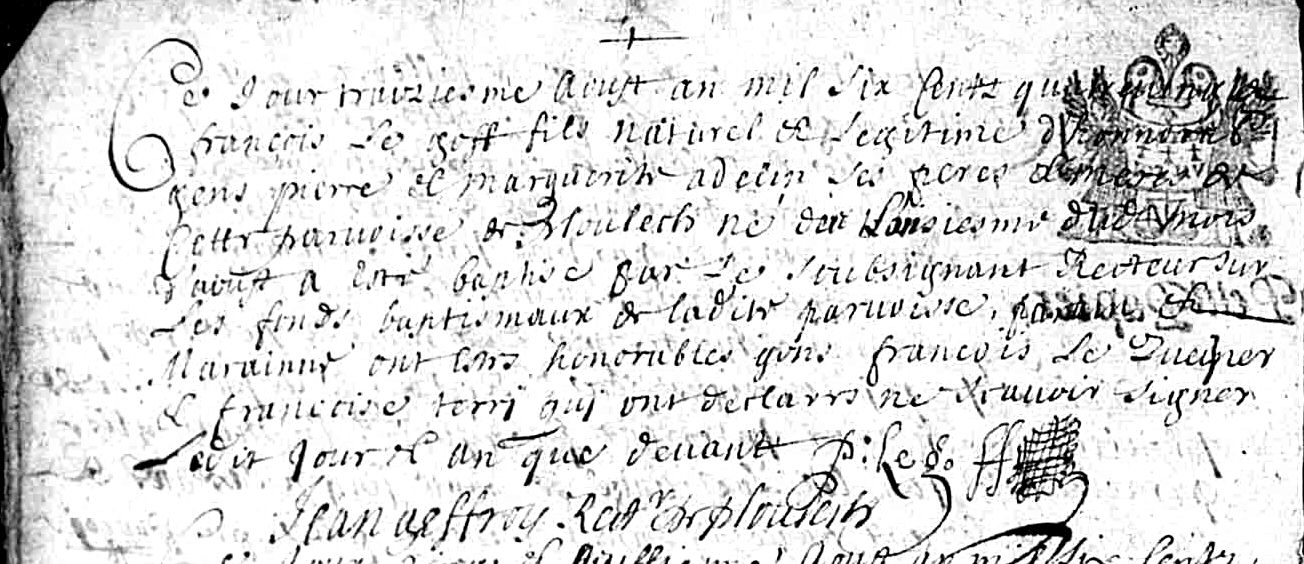 Ce Jour traiziesme Aoust an mil six centz
françois Le goff fils naturel & Legitime d'honnorables
gens pierre & marguerite adelin ses peres & meres de
Cette paroisse de Ploulech né du dud mois
d'aoust a Esté baptisé par Le soubsignant Recteur sur
Les fonds baptismaux de ladite paroisse, parain &
Maraine ont Estés honorables gens françois Le
& francoise terri qui ont declarrés ne scauoir signer
Ledit Jour & an que deuant p: Le goff
Jean geffroy Rectr de ploulech
Aoust an mil six Cents